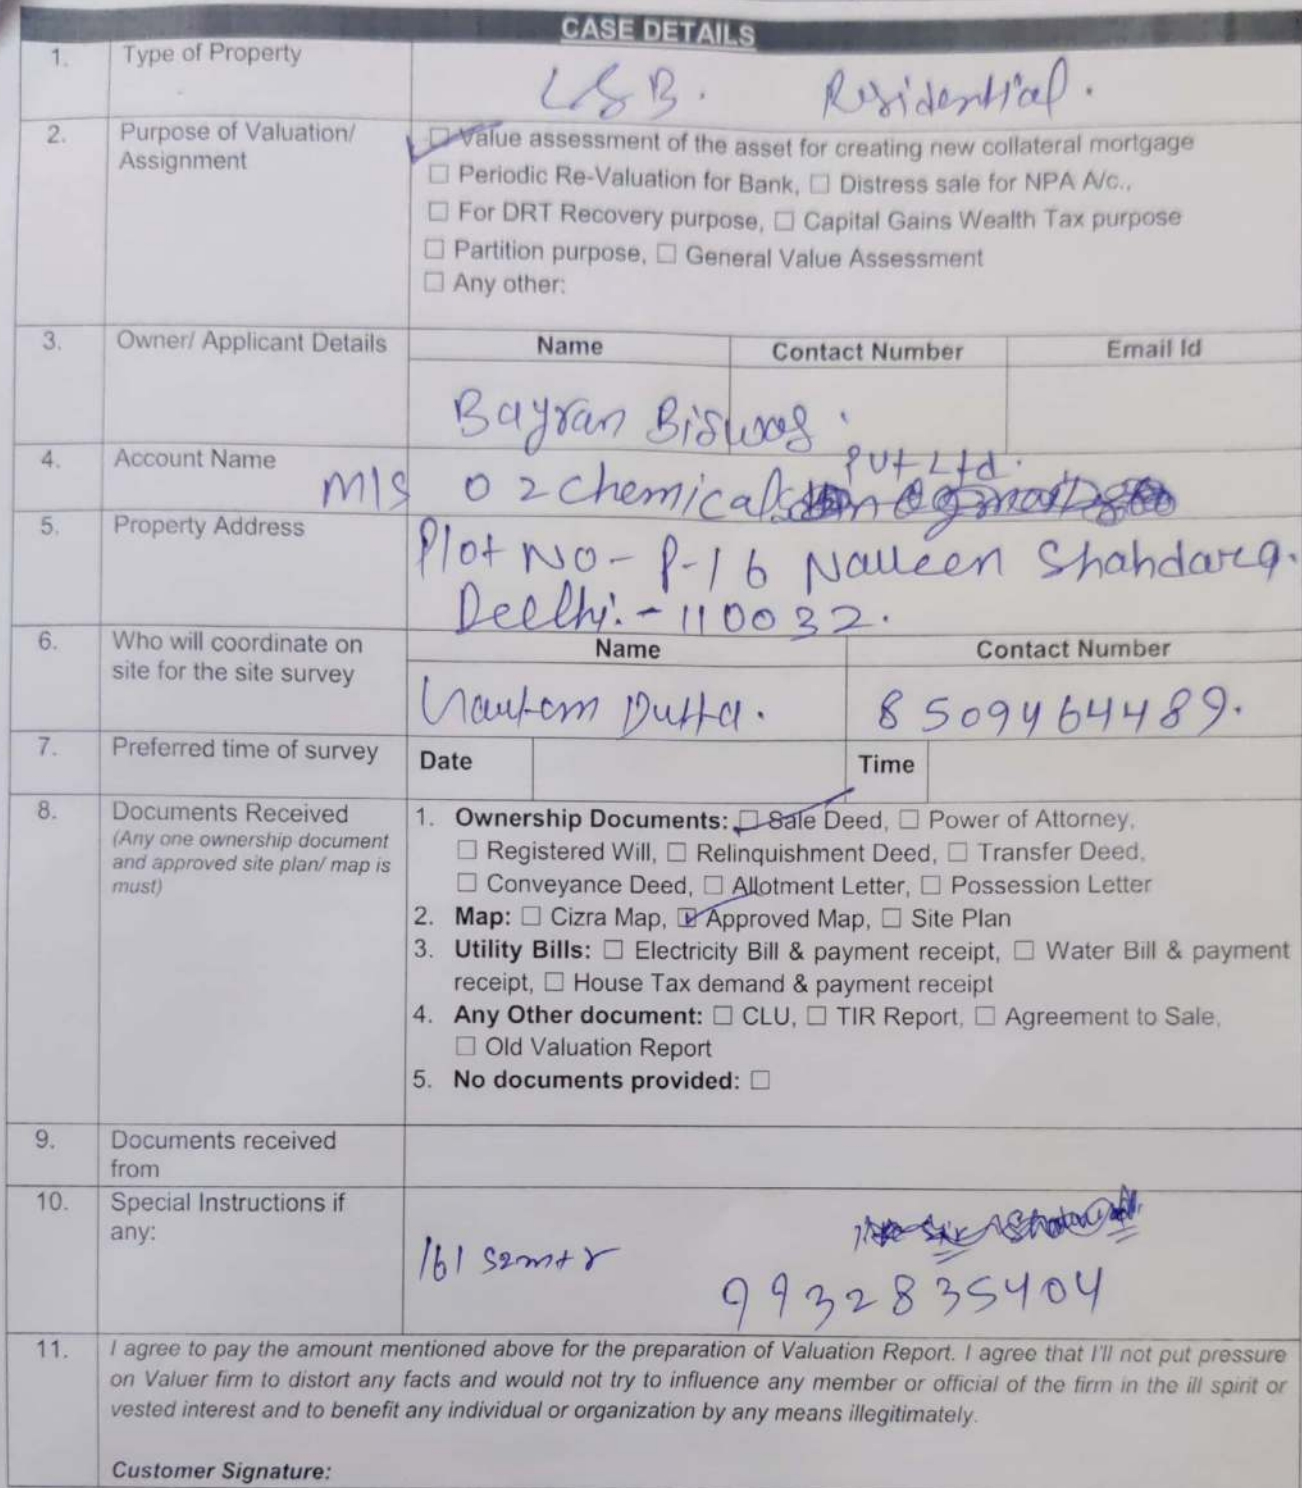 CASE DETAILS
1. Type of Property
L&B. Residential.
2. Purpose of Valuation/ Assignment
☐ Value assessment of the asset for creating new collateral mortgage
☐ Periodic Re-Valuation for Bank, ☐ Distress sale for NPA A/c.,
☐ For DRT Recovery purpose, ☐ Capital Gains Wealth Tax purpose
☐ Partition purpose, ☐ General Value Assessment
☐ Any other:
3. Owner/ Applicant Details
Name Contact Number Email Id
Bayran Biswas.
4. Account Name
M/S O2 Chemicals Pvt Ltd.
5. Property Address
Plot No - P-16 Naveen Shahdara.
Deelhi. - 110032.
6. Who will coordinate on
site for the site survey
Name Contact Number
Gautam Dutta. 8509464489.
7. Preferred time of survey
Date Time
8. Documents Received
(Any one ownership document
and approved site plan/ map is
must)
1. Ownership Documents: ☐ Sale Deed, ☐ Power of Attorney,
☐ Registered Will, ☐ Relinquishment Deed, ☐ Transfer Deed,
☐ Conveyance Deed, ☐ Allotment Letter, ☐ Possession Letter
2. Map: ☐ Cizra Map, ☑ Approved Map, ☐ Site Plan
3. Utility Bills: ☐ Electricity Bill & payment receipt, ☐ Water Bill & payment
receipt, ☐ House Tax demand & payment receipt
4. Any Other document: ☐ CLU, ☐ TIR Report, ☐ Agreement to Sale,
☐ Old Valuation Report
5. No documents provided: ☐
9. Documents received
from
10. Special Instructions if
any:
161 Sqmtr
9932835404
11. I agree to pay the amount mentioned above for the preparation of Valuation Report. I agree that I'll not put pressure
on Valuer firm to distort any facts and would not try to influence any member or official of the firm in the ill spirit or
vested interest and to benefit any individual or organization by any means illegitimately.
Customer Signature: